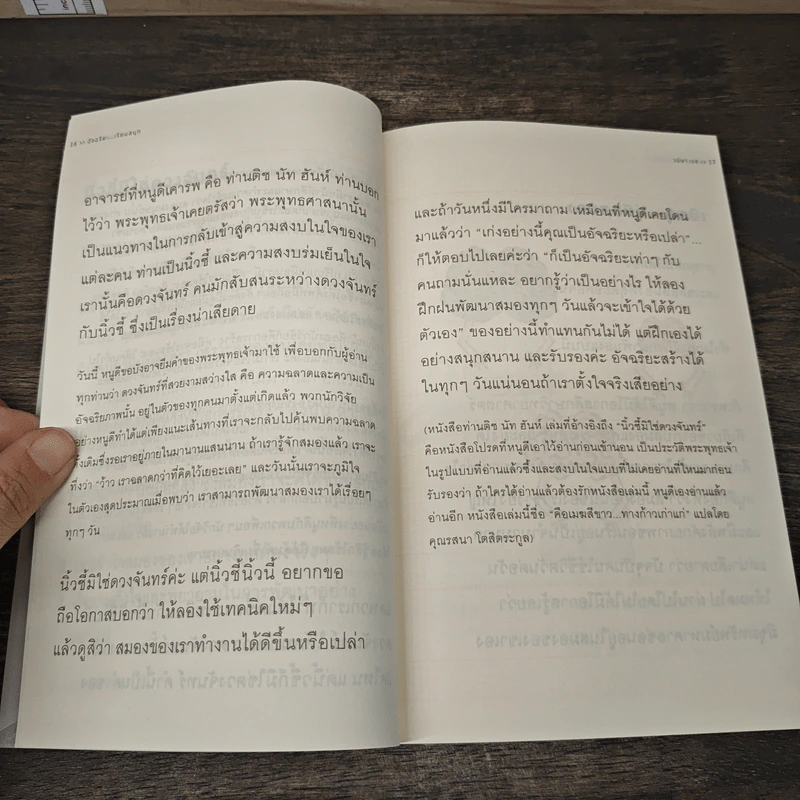 16 >> อัจฉริยะ...เรียนสนุก
อาจารย์ที่หนูดีเคารพ คือ ท่านติช นัท ฮันห์ ท่านบอก
ไว้ว่า พระพุทธเจ้าเคยตรัสว่า พระพุทธศาสนานั้น
เป็นแนวทางในการกลับเข้าสู่ความสงบในใจของเรา
แต่ละคน ท่านเป็นนิ้วชี้ และความสงบร่มเย็นในใจ
เรานั้นคือดวงจันทร์ คนมักสับสนระหว่างดวงจันทร์
กับนิ้วชี้ ซึ่งเป็นเรื่องน่าเสียดาย
วันนี้ หนูดีขอบังอาจยืมคำของพระพุทธเจ้ามาใช้ เพื่อบอกกับผู้อ่าน
ทุกท่านว่า ดวงจันทร์ที่สวยงามสว่างไสว คือ ความฉลาดและความเป็น
อัจฉริยภาพนั้น อยู่ในตัวของทุกคนมาตั้งแต่เกิดแล้ว พวกนักวิจัย
อย่างหนูดีทำได้แต่เพียงแนะเส้นทางที่เราจะกลับไปค้นพบความฉลาด
ดั้งเดิมซึ่งรอเราอยู่ภายในมานานแสนนาน ถ้าเรารู้จักสมองแล้ว เราจะ
ทึ่งว่า “ว้าว เราฉลาดกว่าที่คิดไว้เยอะเลย” และวันนั้นเราจะภูมิใจ
ในตัวเองสุดประมาณเมื่อพบว่า เราสามารถพัฒนาสมองเราได้เรื่อยๆ
ทุกๆ วัน
นิ้วชี้มิใช่ดวงจันทร์ค่ะ แต่นิ้วชี้นิ้วนี้ อยากขอ
ถือโอกาสบอกว่า ให้ลองใช้เทคนิคใหม่ๆ
แล้วดูสิว่า สมองของเราทำงานได้ดีขึ้นหรือเปล่า
17
และถ้าวันหนึ่งมีใครมาถาม เหมือนที่หนูดีเคยโดน
มาแล้วว่า “เก่งอย่างนี้คุณเป็นอัจฉริยะหรือเปล่า”...
ก็ให้ตอบไปเลยค่ะว่า “ก็เป็นอัจฉริยะเท่าๆ กับ
คนถามนั่นแหละ อยากรู้ว่าเป็นอย่างไร ให้ลอง
ฝึกฝนพัฒนาสมองทุกๆ วันแล้วจะเข้าใจได้ด้วย
ตัวเอง” ของอย่างนี้ทำแทนกันไม่ได้ แต่ฝึกเองได้
อย่างสนุกสนาน และรับรองค่ะ อัจฉริยะสร้างได้
ในทุกๆ วันแน่นอนถ้าเราตั้งใจจริงเสียอย่าง
(หนังสือท่านติช นัท ฮันห์ เล่มที่อ้างอิงถึง “นิ้วชี้มิใช่ดวงจันทร์”
คือหนังสือโปรดที่หนูดีเอาไว้อ่านก่อนเข้านอน เป็นประวัติพระพุทธเจ้า
ในรูปแบบที่อ่านแล้วซึ้งและสงบในใจแบบที่ไม่เคยอ่านที่ไหนมาก่อน
รับรองว่า ถ้าใครได้อ่านแล้วต้องรักหนังสือเล่มนี้ หนูดีเองอ่านแล้ว
อ่านอีก หนังสือเล่มนี้ชื่อ “คือเมฆสีขาว...ทางก้าวเก่าแก่” แปลโดย
คุณรสนา โตสิตระกูล)